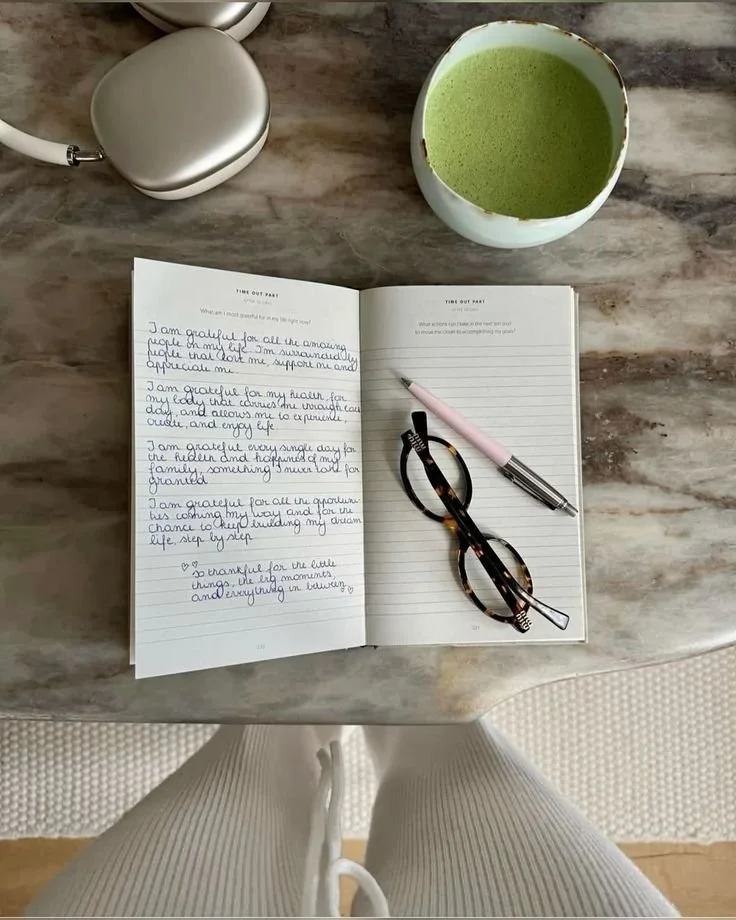 TIME OUT PART
What am I most grateful for in my life right now?
I am grateful for all the amazing
people in my life. I'm surrounded by
people that love me, support me and
appreciate me.
I am grateful for my health, for
my body that carries me through each
day, and allows me to experience,
create, and enjoy life.
I am grateful every single day for
the health and happiness of my
family, something I never take for
granted
I am grateful for all the opportuni-
ties coming my way and for the
chance to keep building my dream
life, step by step
So thankful for the little
things, the big moments,
and everything in between
TIME OUT PART
What actions can I take in the next
to move me closer to accomplishing my goals?